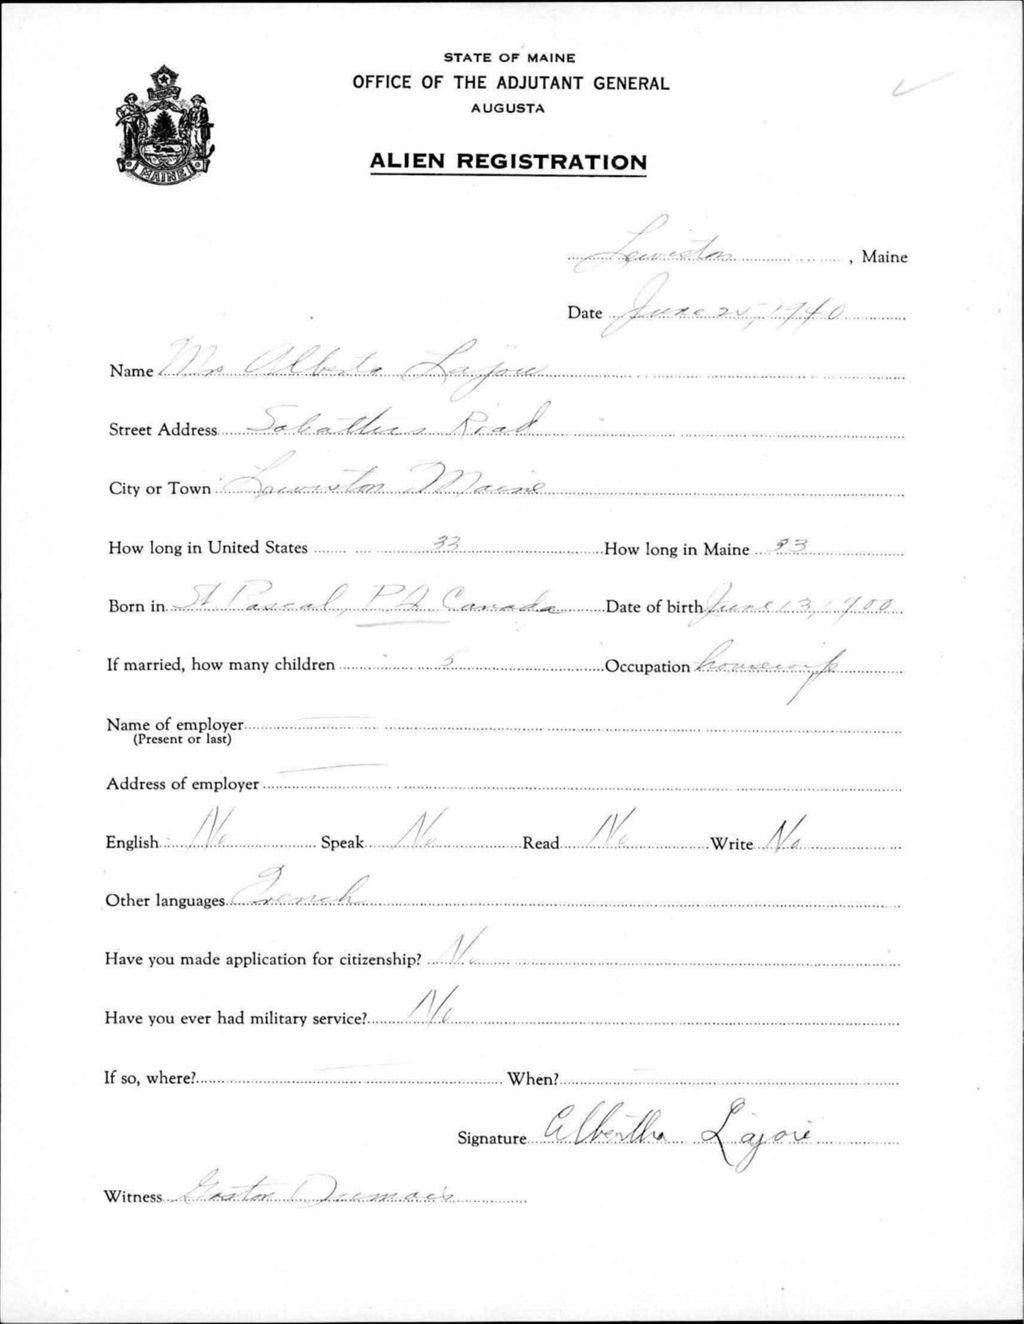 STATE OF MAINE
OFFICE OF THE ADJUTANT GENERAL
AUGUSTA
MAINE
ALIEN REGISTRATION
Lewiston, Maine
Date June 25, 1940
Name Mrs Alberta Lajoie
Street Address Sabattus Road
City or Town Lewiston Maine
How long in United States 33 How long in Maine 33
Born in St Pascal, P Q Canada Date of birth June 13, 1900
If married, how many children 5 Occupation housewife
Name of employer
(Present or last)
Address of employer
English No Speak No Read No Write No
Other languages French
Have you made application for citizenship? No
Have you ever had military service? No
If so, where? When?
Signature Albertha Lajoie
Witness Gaston Dumais